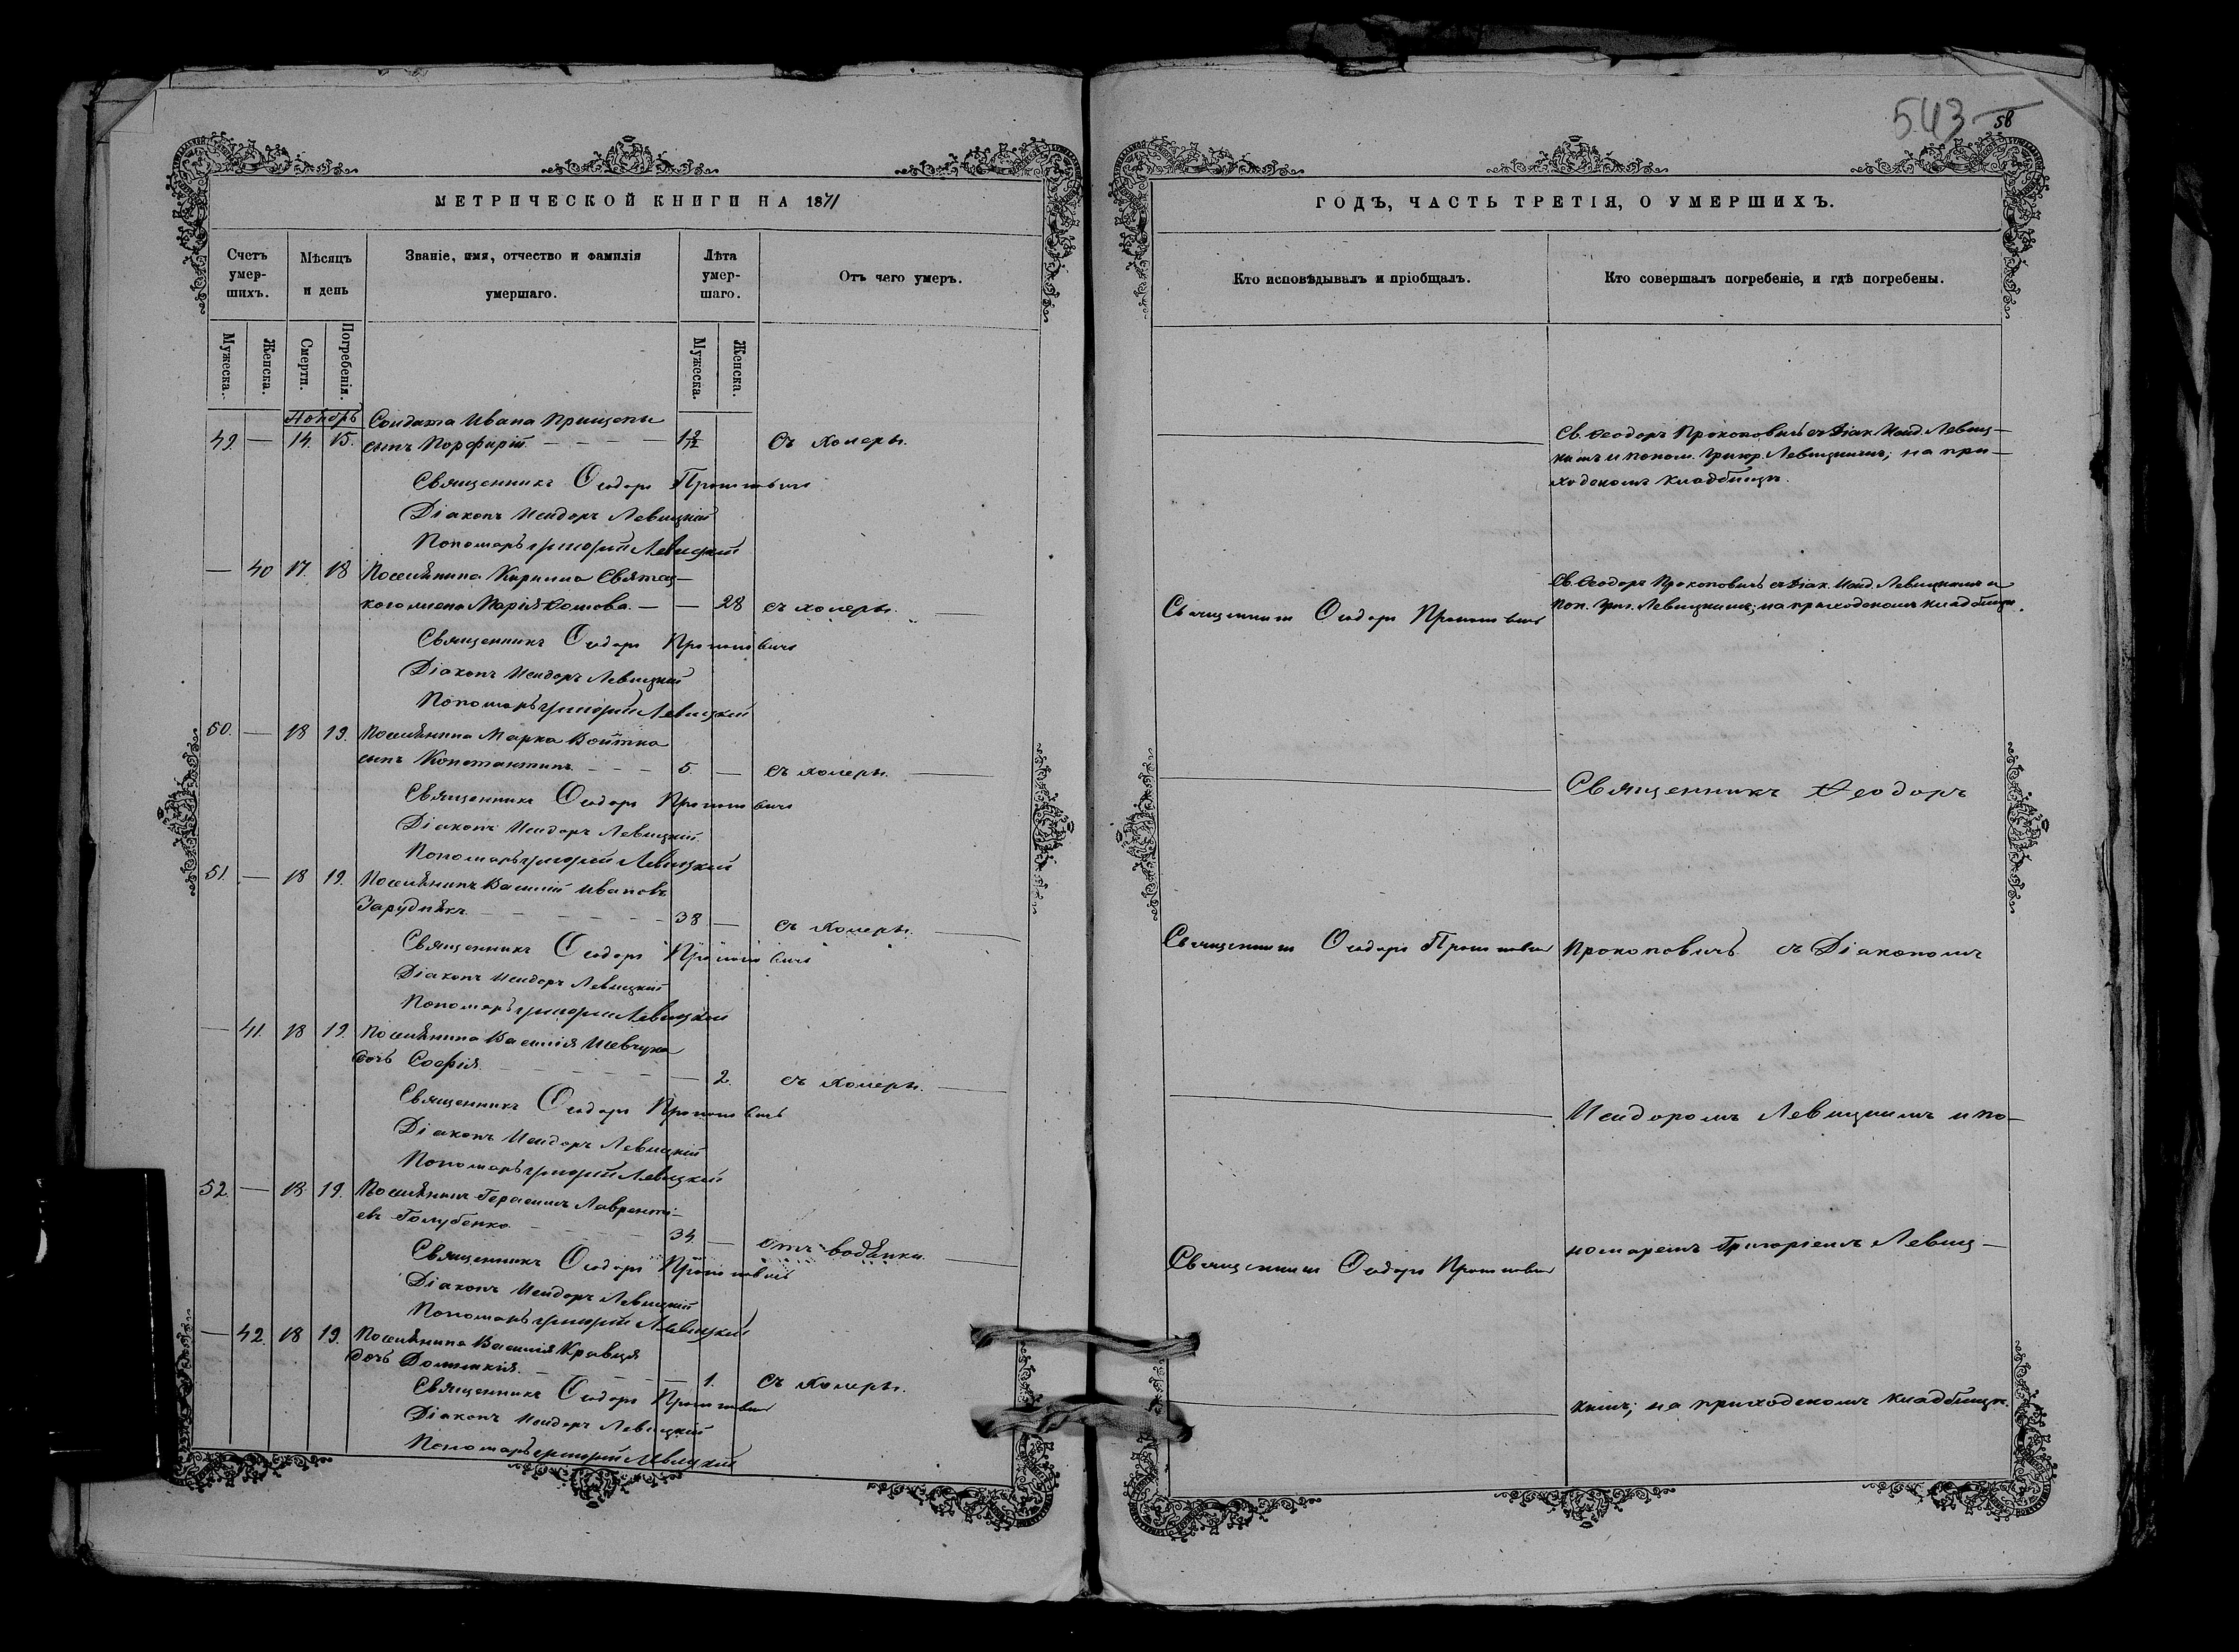 МЕТРИЧЕСКОЙ КНИГИ НА 1871
Счетъ умер-шихъ.
Мѣсяцъ и день
Званіе, имя, отчество и фамилія умершаго.
Лѣта умер-шаго.
Отъ чего умеръ.
Мужеска.
Женска.
Смерти.
Погребенія.
Мужеска.
Женска.
Ноябрь
Солдата Ивана Прищепы
49. — 14. 15. сынъ Порфирій — — — 1 съ холеры.
Священникъ Ѳеодоръ Прокоповичъ
Діаконъ Исидоръ Левицкій
Пономарь Григорій Левицкій
— 40 17. 18 Поселянина Кирилла Святец-
кого жена Марія — — 28 съ холеры. —
Священникъ Ѳеодоръ Прокоповичъ
Діаконъ Исидоръ Левицкій
Пономарь Григорій Левицкій
50. — 18 19. Поселянина Марка Войтка
сынъ Константинъ — — — 5. — съ холеры. —
Священникъ Ѳеодоръ Прокоповичъ
Діаконъ Исидоръ Левицкій
Пономарь Григорій Левицкій
51. — 18 19. Поселянинъ Василій Ивановъ
Заруднѣкъ — — — 38 — съ холеры. —
Священникъ Ѳеодоръ Прокоповичъ
Діаконъ Исидоръ Левицкій
Пономарь Григорій Левицкій
— 41. 18 19. Поселянина Василія Шевчука
дочь Софія — — — 2. съ холеры. —
Священникъ Ѳеодоръ Прокоповичъ
Діаконъ Исидоръ Левицкій
Пономарь Григорій Левицкій
52. — 18 19. Поселянинъ Герасимъ Лавренті-
евъ Голубенко — — — 34. — отъ водянки. —
Священникъ Ѳеодоръ Прокоповичъ
Діаконъ Исидоръ Левицкій
Пономарь Григорій Левицкій
— 42. 18 19. Поселянина Василія Кравця
дочь Домникія. — — — 1. съ холеры.
Священникъ Ѳеодоръ Прокоповичъ
Діаконъ Исидоръ Левицкій
Пономарь Григорій Левицкій
543
58
ГОДЪ, ЧАСТЬ ТРЕТІЯ, О УМЕРШИХЪ.
Кто исповѣдывалъ и пріобщалъ.
Кто совершалъ погребеніе, и гдѣ погребены.
Св. Ѳеодоръ Прокоповичъ съ Діак. Исид. Левиц-
кимъ и поном. Григор. Левицкимъ; на при-
ходскомъ кладбищѣ.
Священникъ Ѳеодоръ Прокоповичъ
Св. Ѳеодоръ Прокоповичъ съ Діак. Исид. Левицкимъ и
пон. Григ. Левицкимъ; на приходскомъ кладбищѣ.
Священникъ Ѳеодоръ
Священникъ Ѳеодоръ Прокоповичъ
Прокоповичъ съ Діакономъ
Исидоромъ Левицкимъ и по-
Священникъ Ѳеодоръ Прокоповичъ
номаремъ Григоріемъ Левиц-
кимъ; на приходскомъ кладбищѣ.